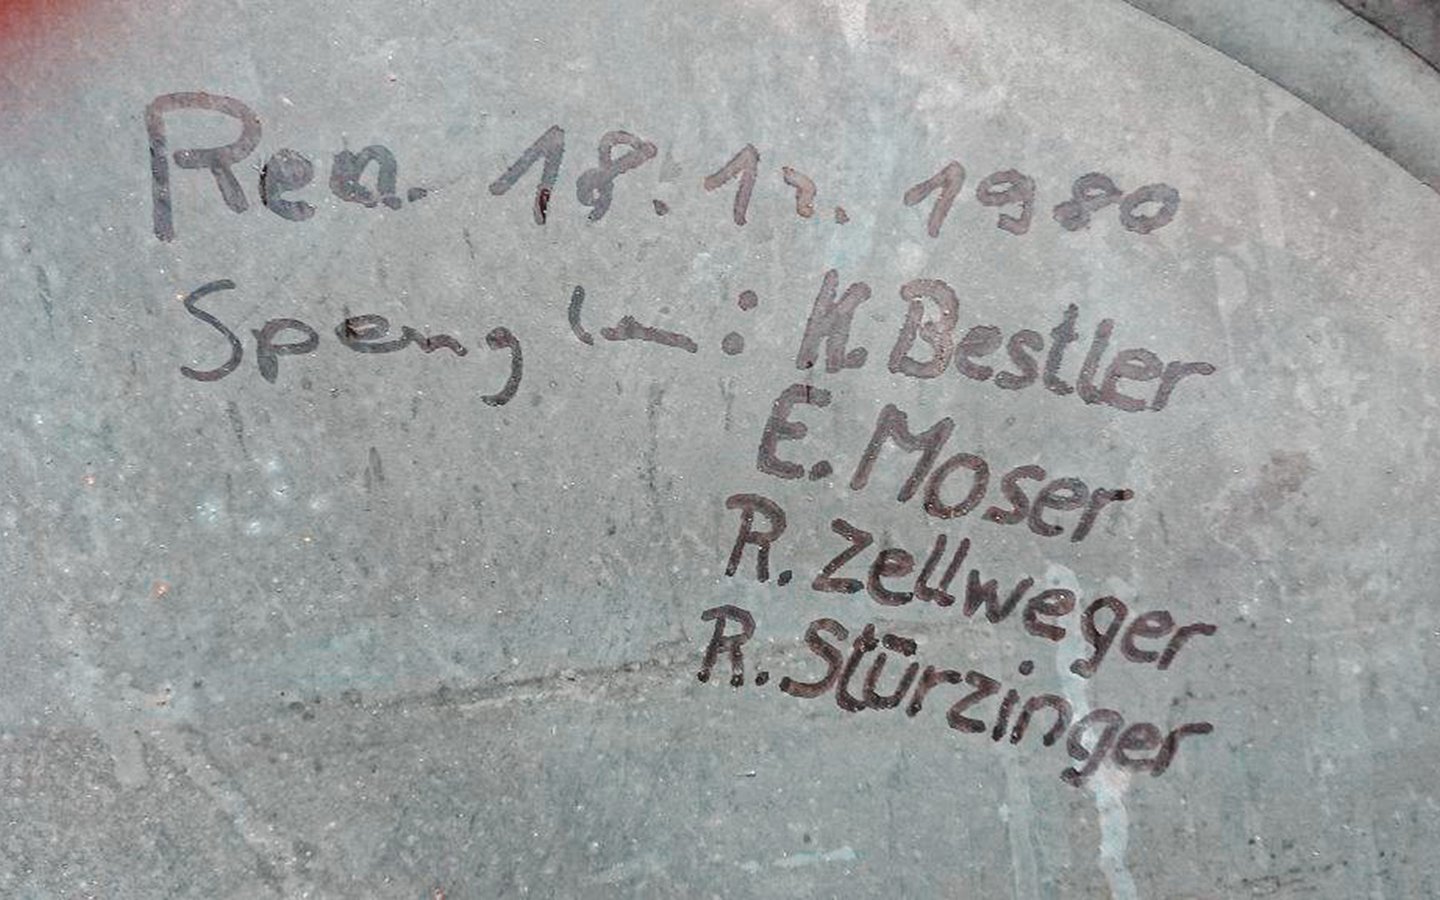 Ren. 18.12. 1980
Spengler: K. Bestler
E. Moser
R. Zellweger
R. Stürzinger